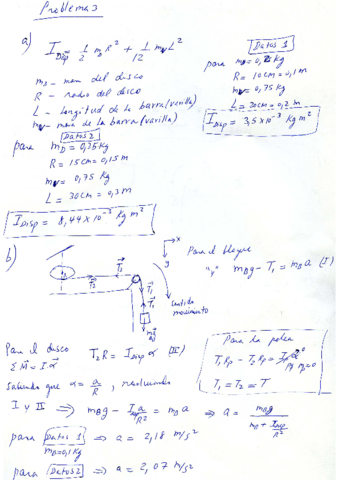 Problema 3
a) I_Disp = 1/2 m_D R² + 1/12 m_v L²
m_D - masa del disco
R - radio del disco
L - longitud de la barra (varilla)
m_v - masa de la barra (varilla)
Datos 1
para
R = 10cm = 0,1 m
m_v = 0,75 kg
I_Disp = 3,5 x 10⁻³ kg m²
Datos 2
para m_D = 0,75 kg
R = 15cm = 0,15 m
m_v = 0,75 kg
L = 30cm = 0,3 m
I_Disp = 8,44 x 10⁻³ kg m²
b)
x
y
T₂
T₂
T₁
T₁
sentido
movimiento
Para el bloque
"y" m_B g - T₁ = m_B a (I)
Para el disco
Σ M = I α
T₂ R = I_Disp α (II)
Para la polea
T₁ R_p - T₂ R_p =
T₁ = T₂ = T
Sabiendo que α = a/R,
I y II ⟹ m_B g - I_Disp a/R² = m_B a ⟹ a = m_B g / (m_B + I_Disp/R²)
para Datos 1 ⟹ a = 2,18 m/s²
m_B = 0,1 kg
para Datos 2 ⟹ a = 2,07 m/s²